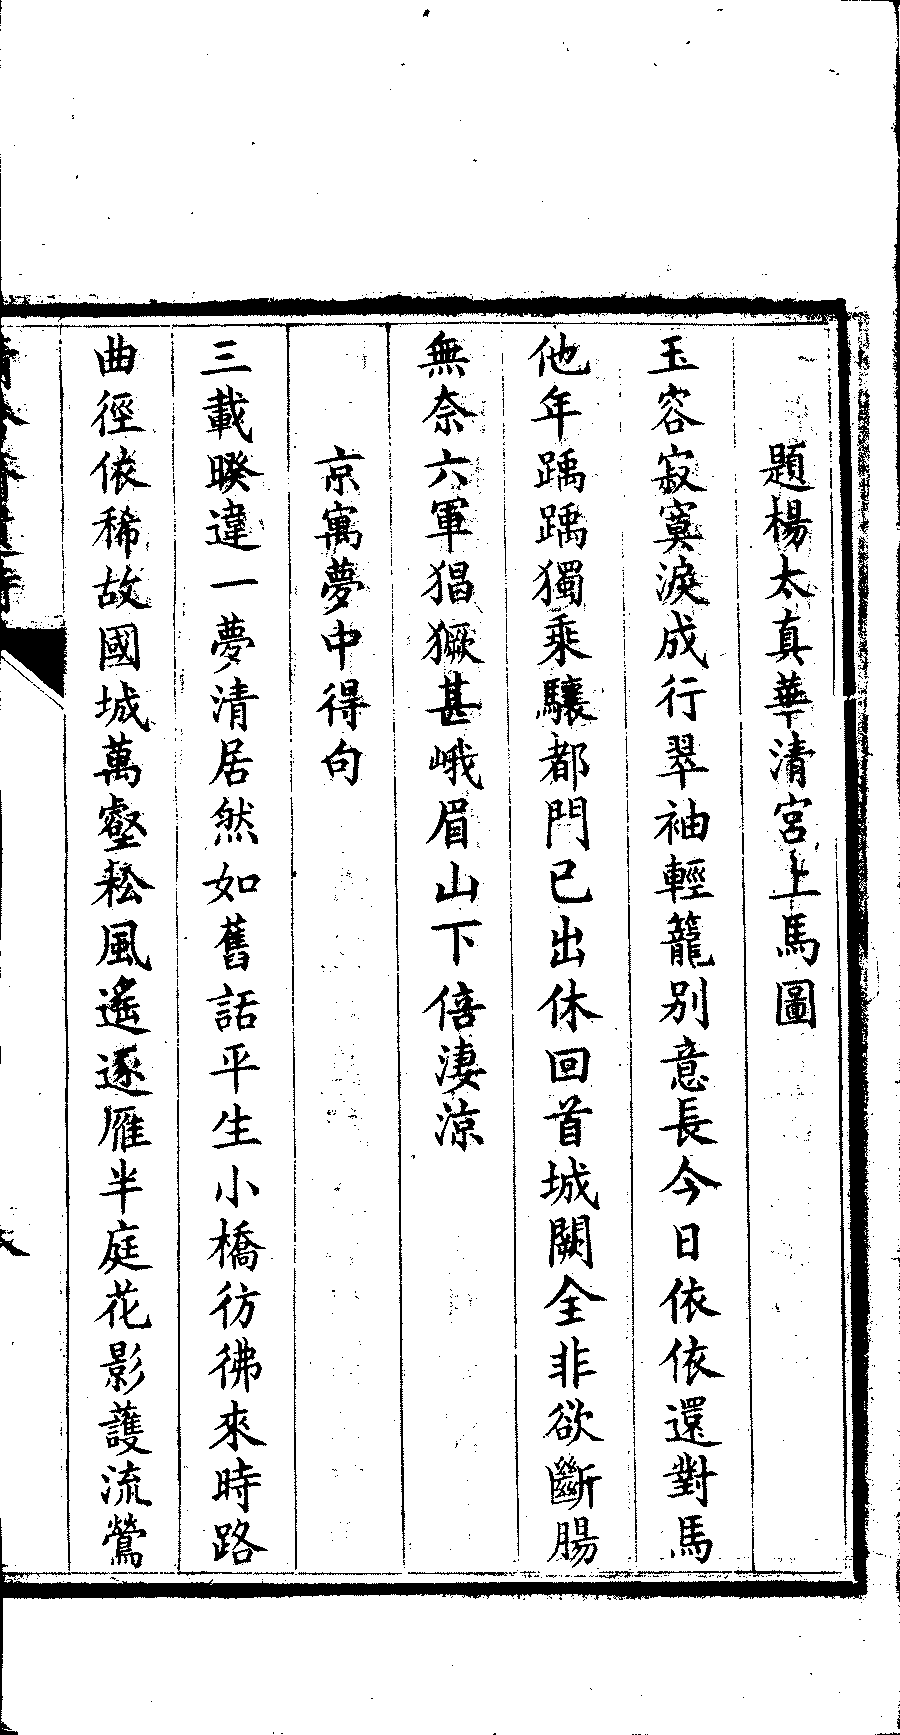 題楊太真華清宮上馬圖
玉容寂寞淚成行翠袖輕籠別意長今日依依還對馬
他年踽踽獨乘驤都門已出休回首城闕全非欲斷腸
無奈六軍猖獗甚峨眉山下倍淒涼
京寓夢中得句
三載暌違一夢清居然如舊話平生小橋彷彿來時路
曲徑依稀故國城萬壑松風遙逐雁半庭花影護流鶯